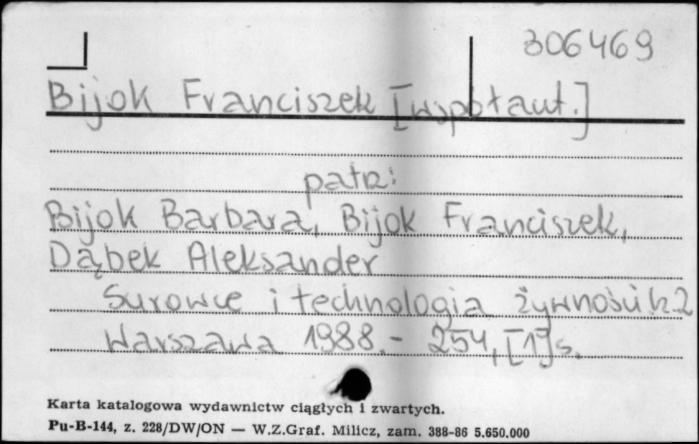 306469
Bijok Franciszek [współaut.]
patrz:
Bijok Barbara, Bijok Franciszek,
Dąbek Aleksander
Surowce i technologia żywności k.2
Warszawa 1988.- 254, [1] s.
Karta katalogowa wydawnictw ciągłych i zwartych.
Pu-B-144, z. 228/DW/ON — W.Z.Graf. Milicz, zam. 388-86 5.650.000